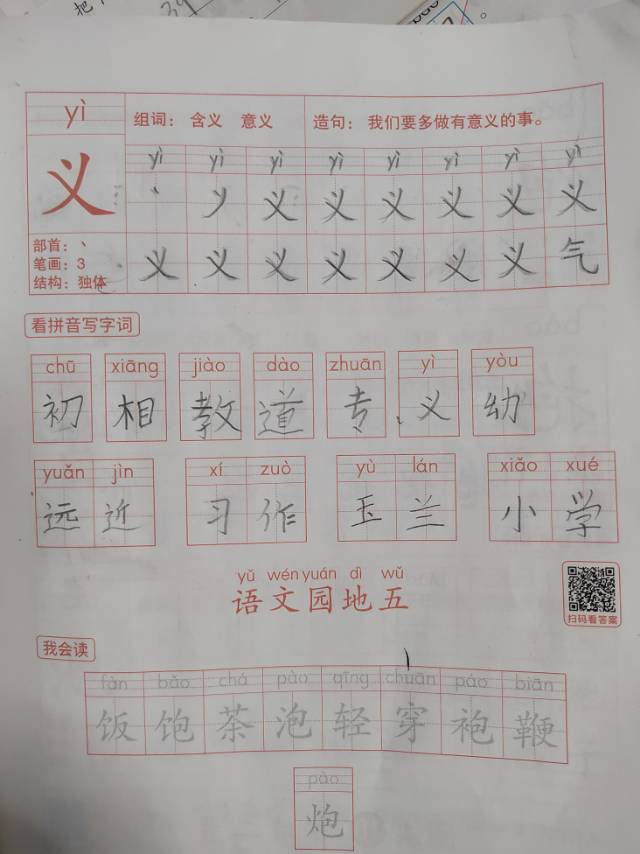 yì
组词： 含义 意义 造句： 我们要多做有意义的事。
yì yì yì yì yì yì yì yì
义 丶 㐅 义 义 义 义 义 义
部首：丶
笔画：3
结构：独体
义 义 义 义 义 义 义 气
看拼音写字词
chū xiāng jiào dào zhuān yì yòu
初 相 教 道 专 义 幼
yuǎn jìn xí zuò yù lán xiǎo xué
远 近 习 作 玉 兰 小 学
yǔ wén yuán dì wǔ
语文园地五
扫码看答案
我会读
fàn bǎo chá pào qīng chuān páo biān
饭 饱 茶 泡 轻 穿 袍 鞭
pào
炮